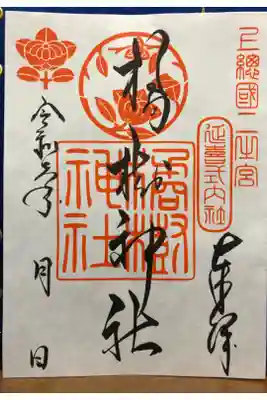 上總國二之宮
延喜式内社
奉拝
橘樹神社
橘樹
神社
令和 年 月 日